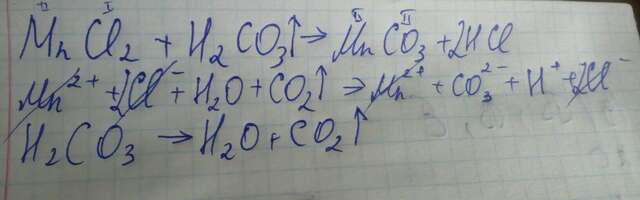 II I II II
MnCl₂ + H₂CO₃↑ → MnCO₃ + 2HCl
Mn²⁺ + 2Cl⁻ + H₂O + CO₂↑ → Mn²⁺ + CO₃²⁻ + H⁺ + 2Cl⁻
H₂CO₃ → H₂O + CO₂↑